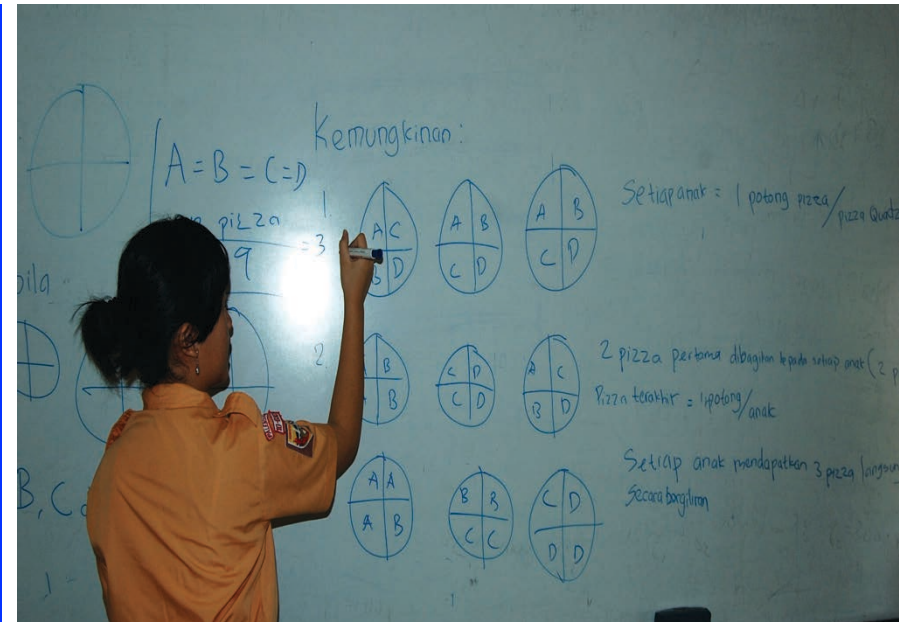 Kemungkinan:
A = B = C = D
pizza
9 = 3
1.
A C
B D
A B
C D
A B
C D
Setiap anak = 1 potong pizza/pizza
2.
B
B
C D
C D
A C
B D
2 pizza pertama dibagikan kepada setiap anak (2 p
Pizza terakhir = 1 potong/anak
A A
A B
B B
C C
C D
D D
Setiap anak mendapatkan 3 pizza langsung
secara bergiliran
B, C